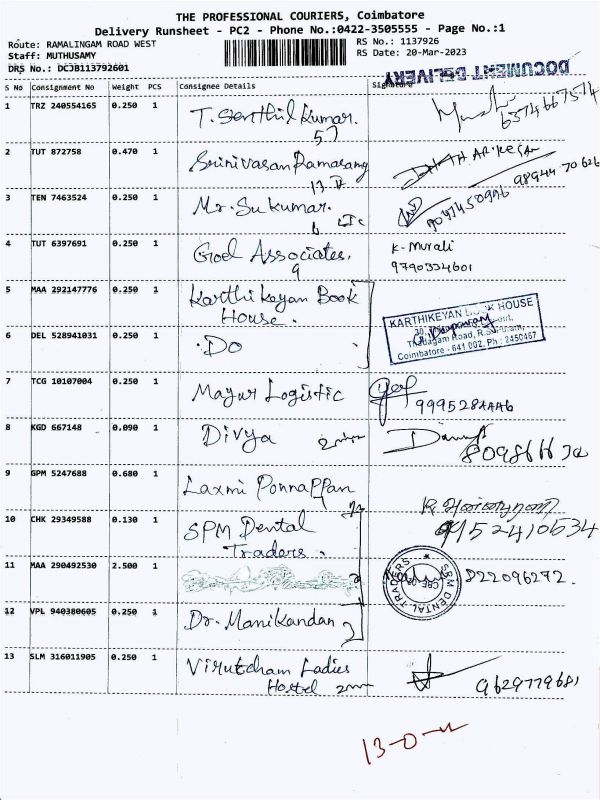 THE PROFESSIONAL COURIERS, Coimbatore
Delivery Runsheet - PC2 - Phone No.:0422-3505555 - Page No.:1
Route: RAMALINGAM ROAD WEST
Staff: MUTHUSAMY
DRS No.: DCJB113792601
RS No.: 1137926
RS Date: 20-Mar-2023
DOCUMENT DELIVERY
S No Consignment No Weight PCS Consignee Details Signature
1 TRZ 240554165 0.250 1 T. Senthil Kumar.
57
6374667514
2 TUT 872758 0.470 1 Srinivasan Ramasang
13
98944 70626
3 TEN 7463524 0.250 1 Mr. Sukumar.
6
4 TUT 6397691 0.250 1 Goel Associates, K. Murali
9 9790334601
5 MAA 292147776 0.250 1 Karthikeyan Book
House.
KARTHIKEYAN BOOK HOUSE
Thadagam Road, R.S.Puram,
Coimbatore - 641 002. Ph : 2450467
6 DEL 528941031 0.250 1 Do
7 TCG 10107004 0.250 1 Mayur Logistic
8 KGD 667148 0.090 1 Divya
9 GPM 5247688 0.680 1 Laxmi Ponnappan
10 CHK 29349588 0.130 1 SPM Dental
Traders.
9152410634
11 MAA 290492530 2.500 1
SRM DENTAL TRADERS
CBE-02
D22096272.
12 VPL 940380605 0.250 1 Dr. Manikandan
13 SLM 316011905 0.250 1 Virutcham Ladies
Hostel
9629779681
13-0-4